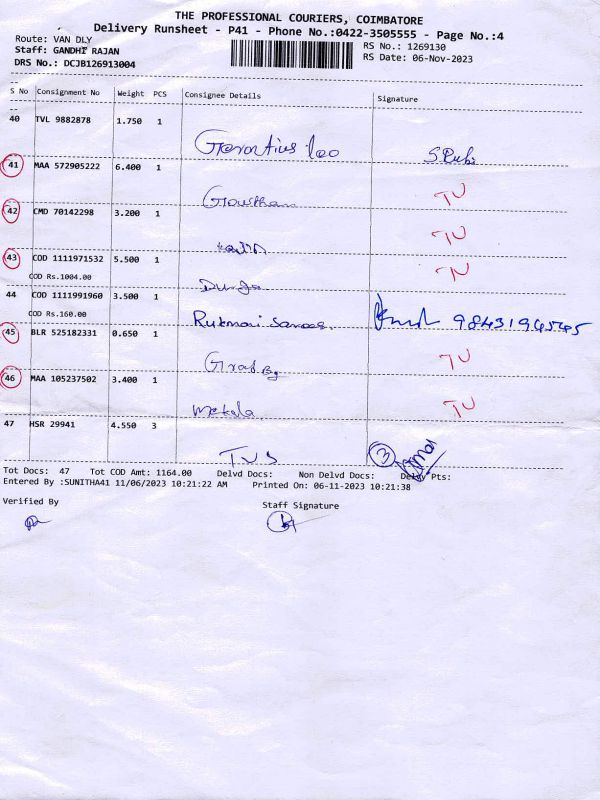 THE PROFESSIONAL COURIERS, COIMBATORE
Delivery Runsheet - P41 - Phone No.:0422-3505555 - Page No.:4
Route: VAN DLY
RS No.: 1269130
Staff: GANDHI RAJAN
RS Date: 06-Nov-2023
DRS No.: DCJB126913004
S No Consignment No Weight PCS Consignee Details Signature
40 TVL 9882878 1.750 1
leo
41 MAA 572905222 6.400 1
Gowtham TU
42 CMD 70142298 3.200 1
TU
43 COD 1111971532 5.500 1
COD Rs.1004.00
Durga TU
44 COD 1111991960 3.500 1
COD Rs.160.00
Rukmai
45 BLR 525182331 0.650 1
TU
46 MAA 105237502 3.400 1
Mekala TU
47 HSR 29941 4.550 3
TVS 3
Tot Docs: 47 Tot COD Amt: 1164.00 Delvd Docs: Non Delvd Docs: Delvy Pts:
Entered By :SUNITHA41 11/06/2023 10:21:22 AM Printed On: 06-11-2023 10:21:38
Verified By
Staff Signature